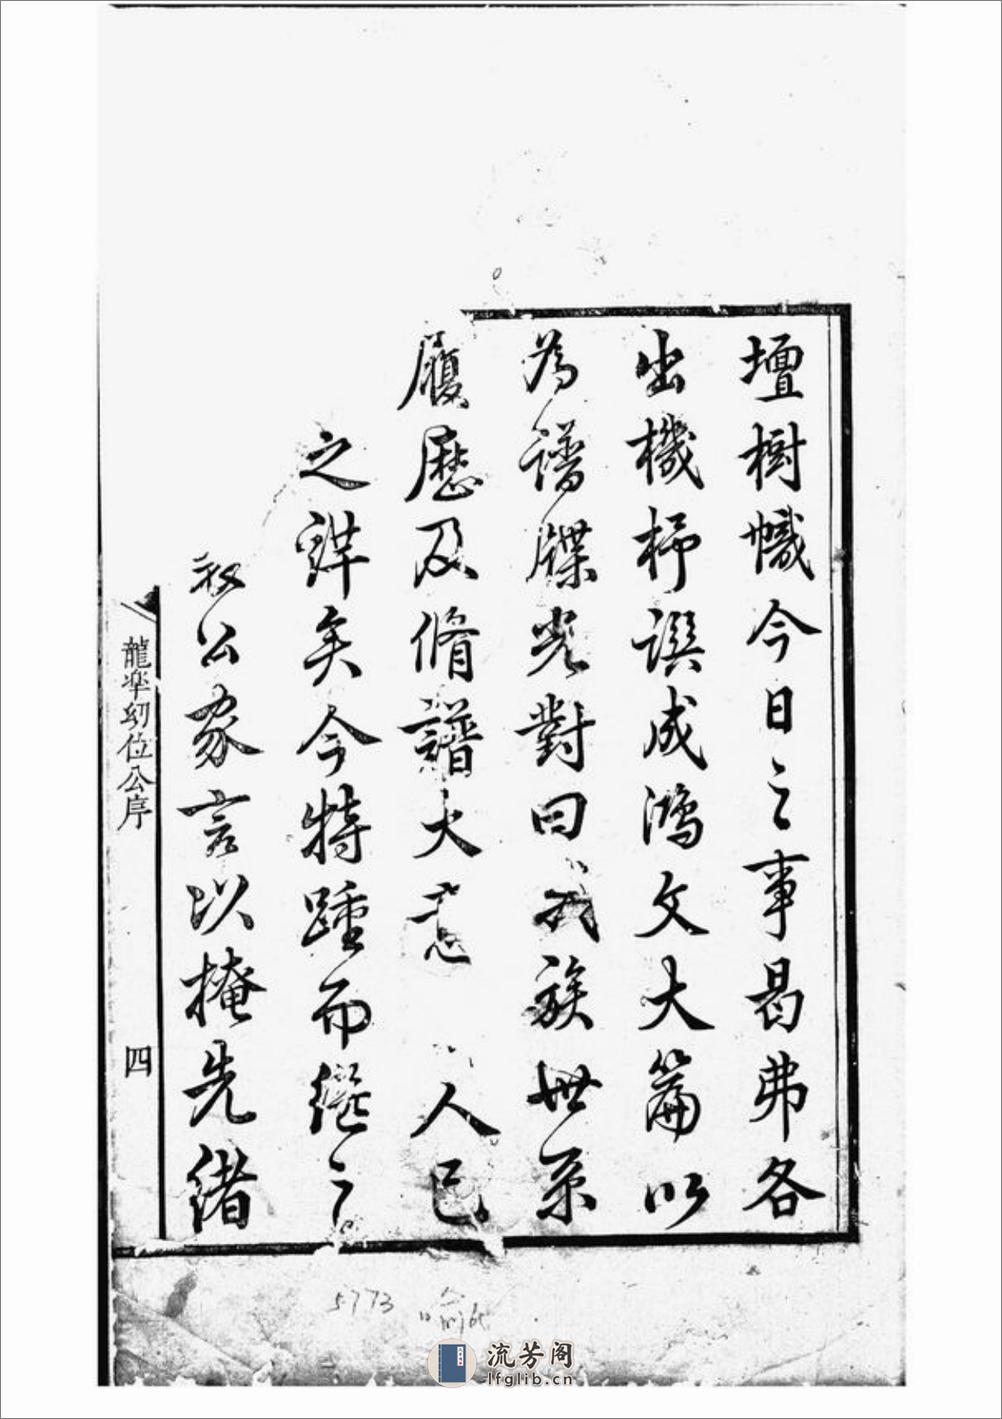 壇樹幟今日之事曷弗各
出機杼譔成鴻文大篇以
為譜牒光對曰我族世系
履歷及脩譜大意人已
之詳矣今特踵而繼之
公家言以掩先緒
龍幼位公序
四
5773
流芳阁
lfglib.cn